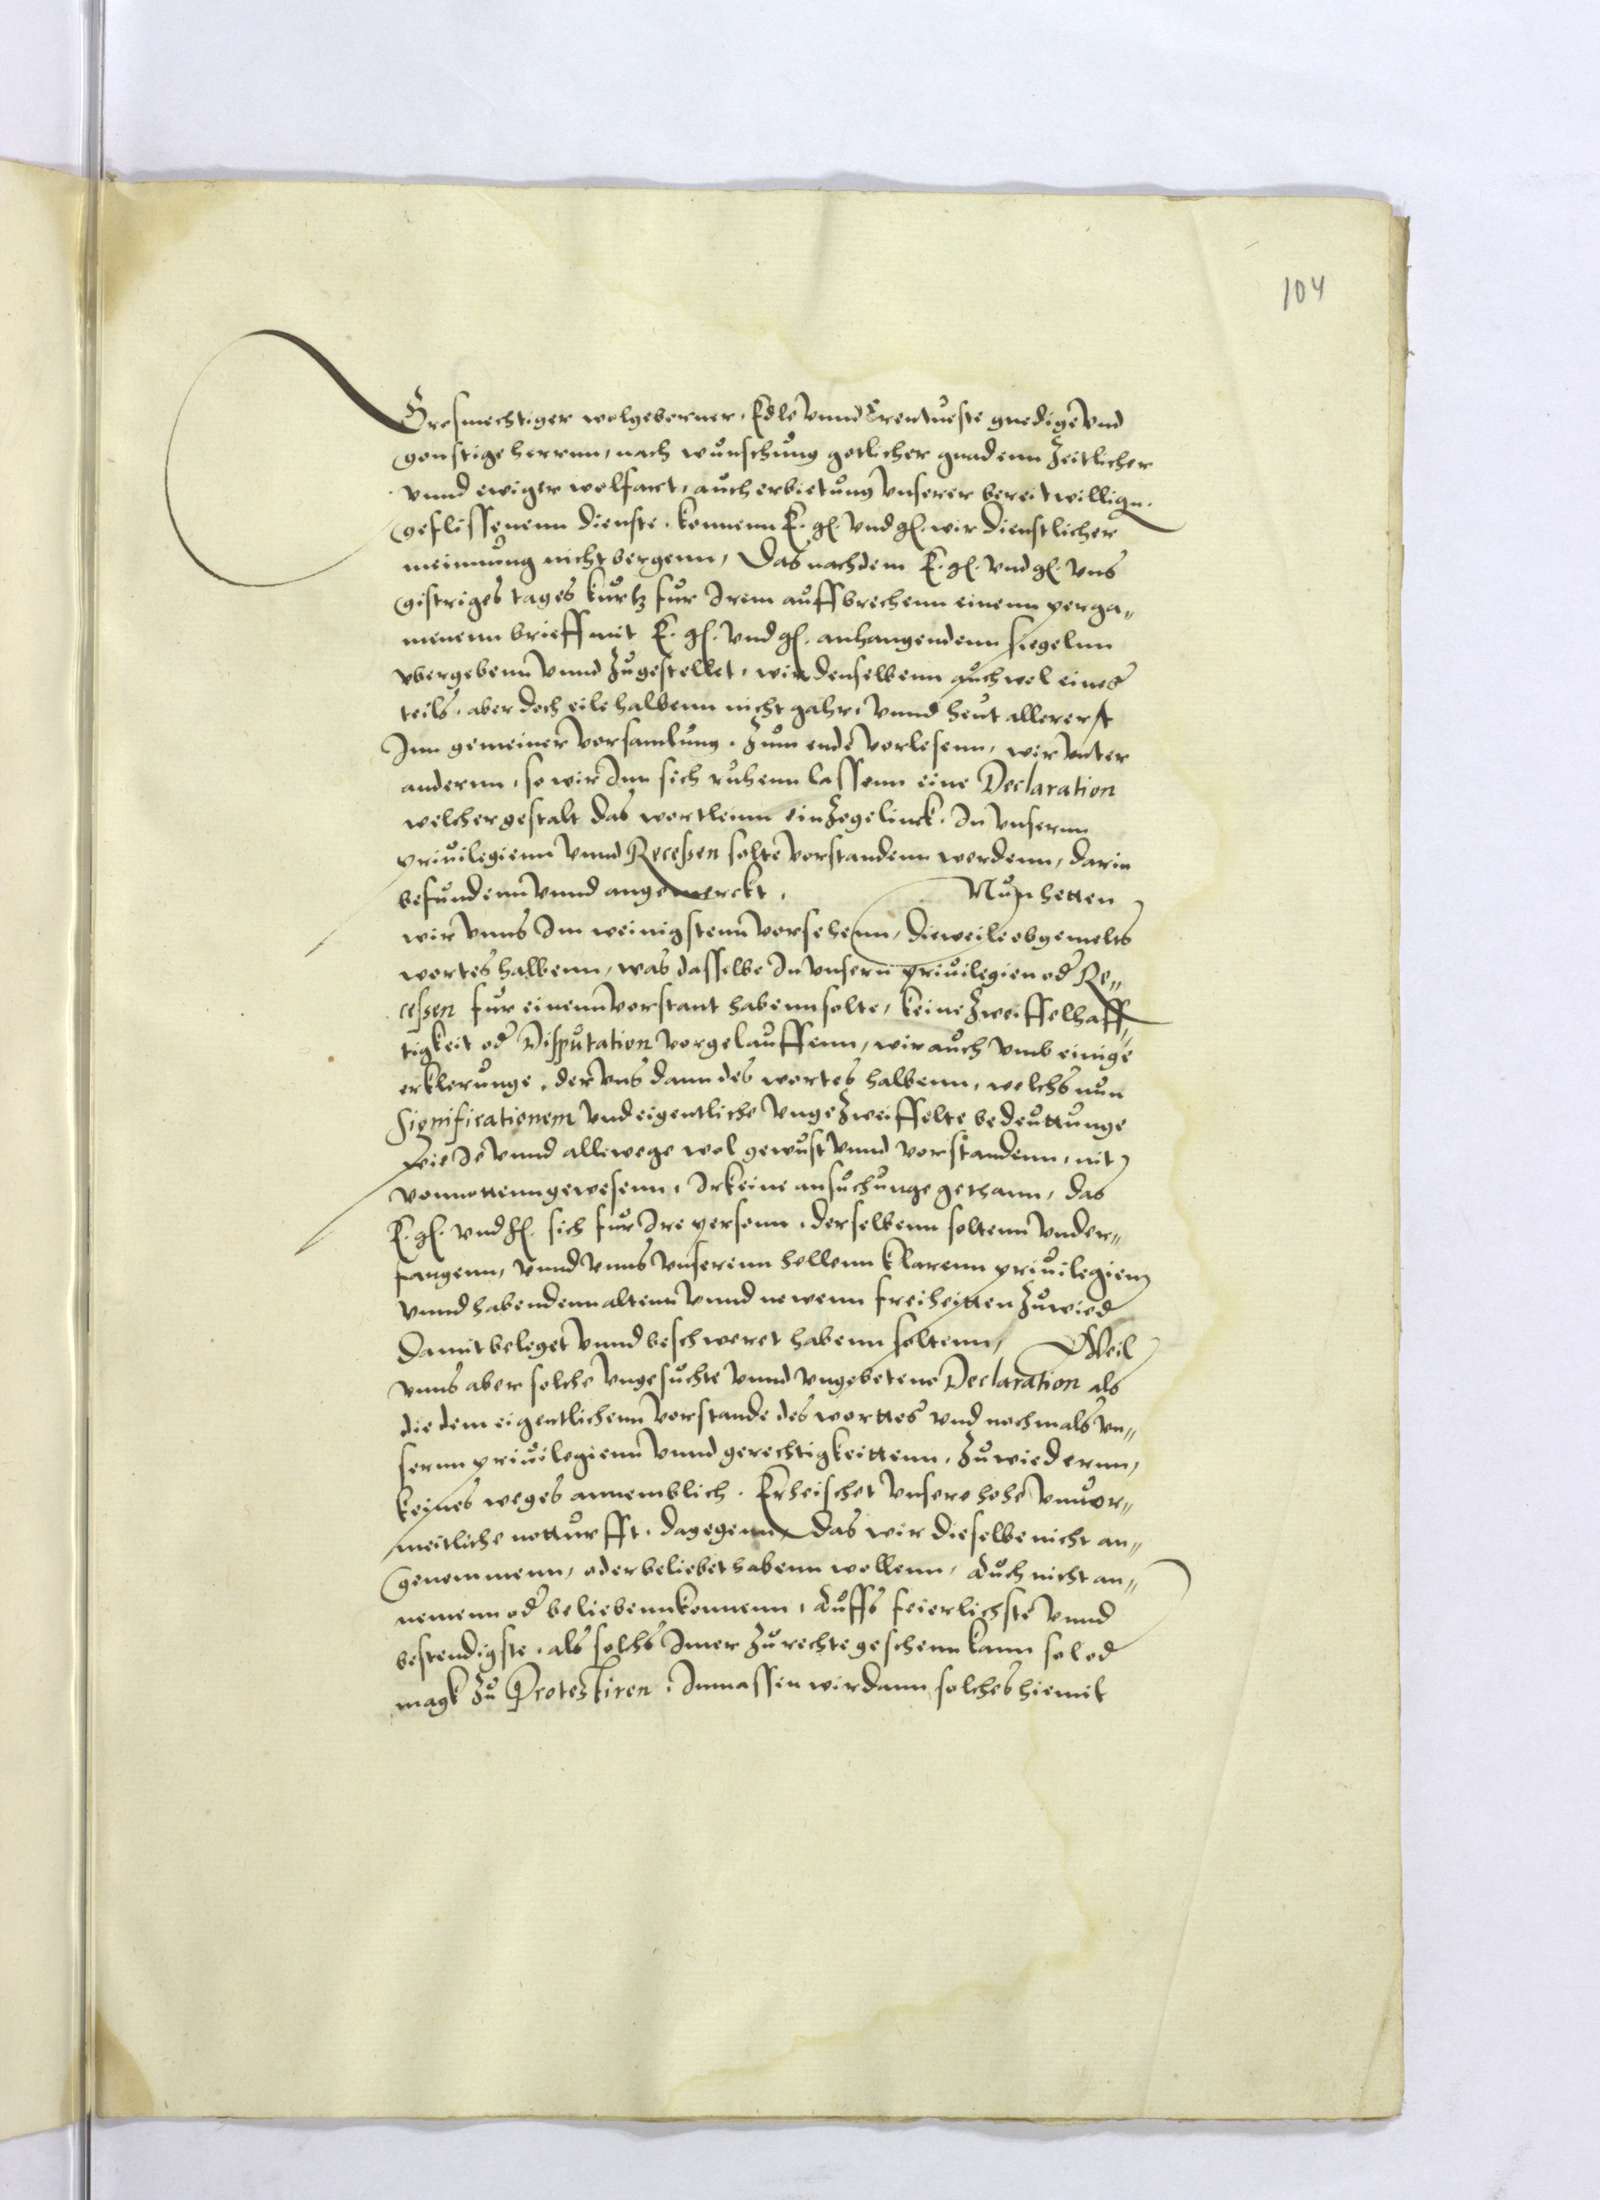 104
Grosmechtiger wolgeborner, Edle vnnd Erentueste gnedige vnd
gonstige herrnn, nach wunschung gotlicher gnadenn Zeitlicher
vnnd ewiger wolfart, auch erbietung vnserer bereitwillign.
geflissenenn dienste, konnenn E. gl. vnd gl. wir dienstlicher
meinnung nicht bergenn, Das nachdem E. gl. vnd gl. vns
gistriges tages kurtz fur Irem auffbrechenn einenn perga„
menenn brieff mit E. gl. vnd gl. anhangendenn siegelnn
vbergebenn vnnd Zugestellet, wir denselbenn auch wol eines
teils, aber doch eile halbenn nicht gahr, vnnd heut allererst
Inn gemeiner vorsamlung, Zum ende vorlesenn, wir vnter
andernn, so wir Inn sich ruhenn lassenn eine Declaration
welcher gestalt das wortlenn einZogelinck, In vnsernn
priuilegienn vnnd Recessen solte vorstandenn werdenn, darin
befundenn vnnd angemerckt. Nun hetten
wir vnns Im weinigstenn vorsehenn, dieweile obgemelts
wortes halbenn, was dasselbe In vnsern priuilegien od Re„
cessen fur einenn vorstant habenn solte, keine Zweiffelhaff„
tigkeit od Disputation vorgelauffenn, wir auch vmb einige
erklerunge, der vns dann des wortes halbenn, welchs nun
Significationem vnd eigentliche vngeZweiffelte bedeuttunge
wie Ie vnnd allewege wol gewust vnnd vorstandenn, nit
vonnottenn gewesenn, Irkeine ansuchunge gethann, das
E. gl. vnd gl. sich fur Ire personn, derselbenn soltenn vnder„
fangenn, vnnd vnns vnserenn hellenn klarenn priuilegien
vnnd habendenn altenn vnnd newenn freiheitten Zuwied
Damit beleget vnnd beschweret habenn soltenn, Weil
vnns aber solche vngesuchte vnnd vngebetene Declaration als
die dem eigentlichenn vorstande des worttes vnd nochmals vn„
sernn priuilegienn vnnd gerechtigkeittenn, Zuwiedernn,
keines weges annemblich. Erheischet vnsere hohe vnuor„
meitliche notturfft, dagegenn, das wir dieselbe nicht an„
genommenn, oder beliebet habenn wollenn, Auch nicht an„
nemenn od beliebenn konnenn, Auffs feierlichste vnnd
bestendigste, als solchs Immer Zu rechte geschenn kann sol od
magk Zu Protestiren, Inmassen wir dann solches hiemit